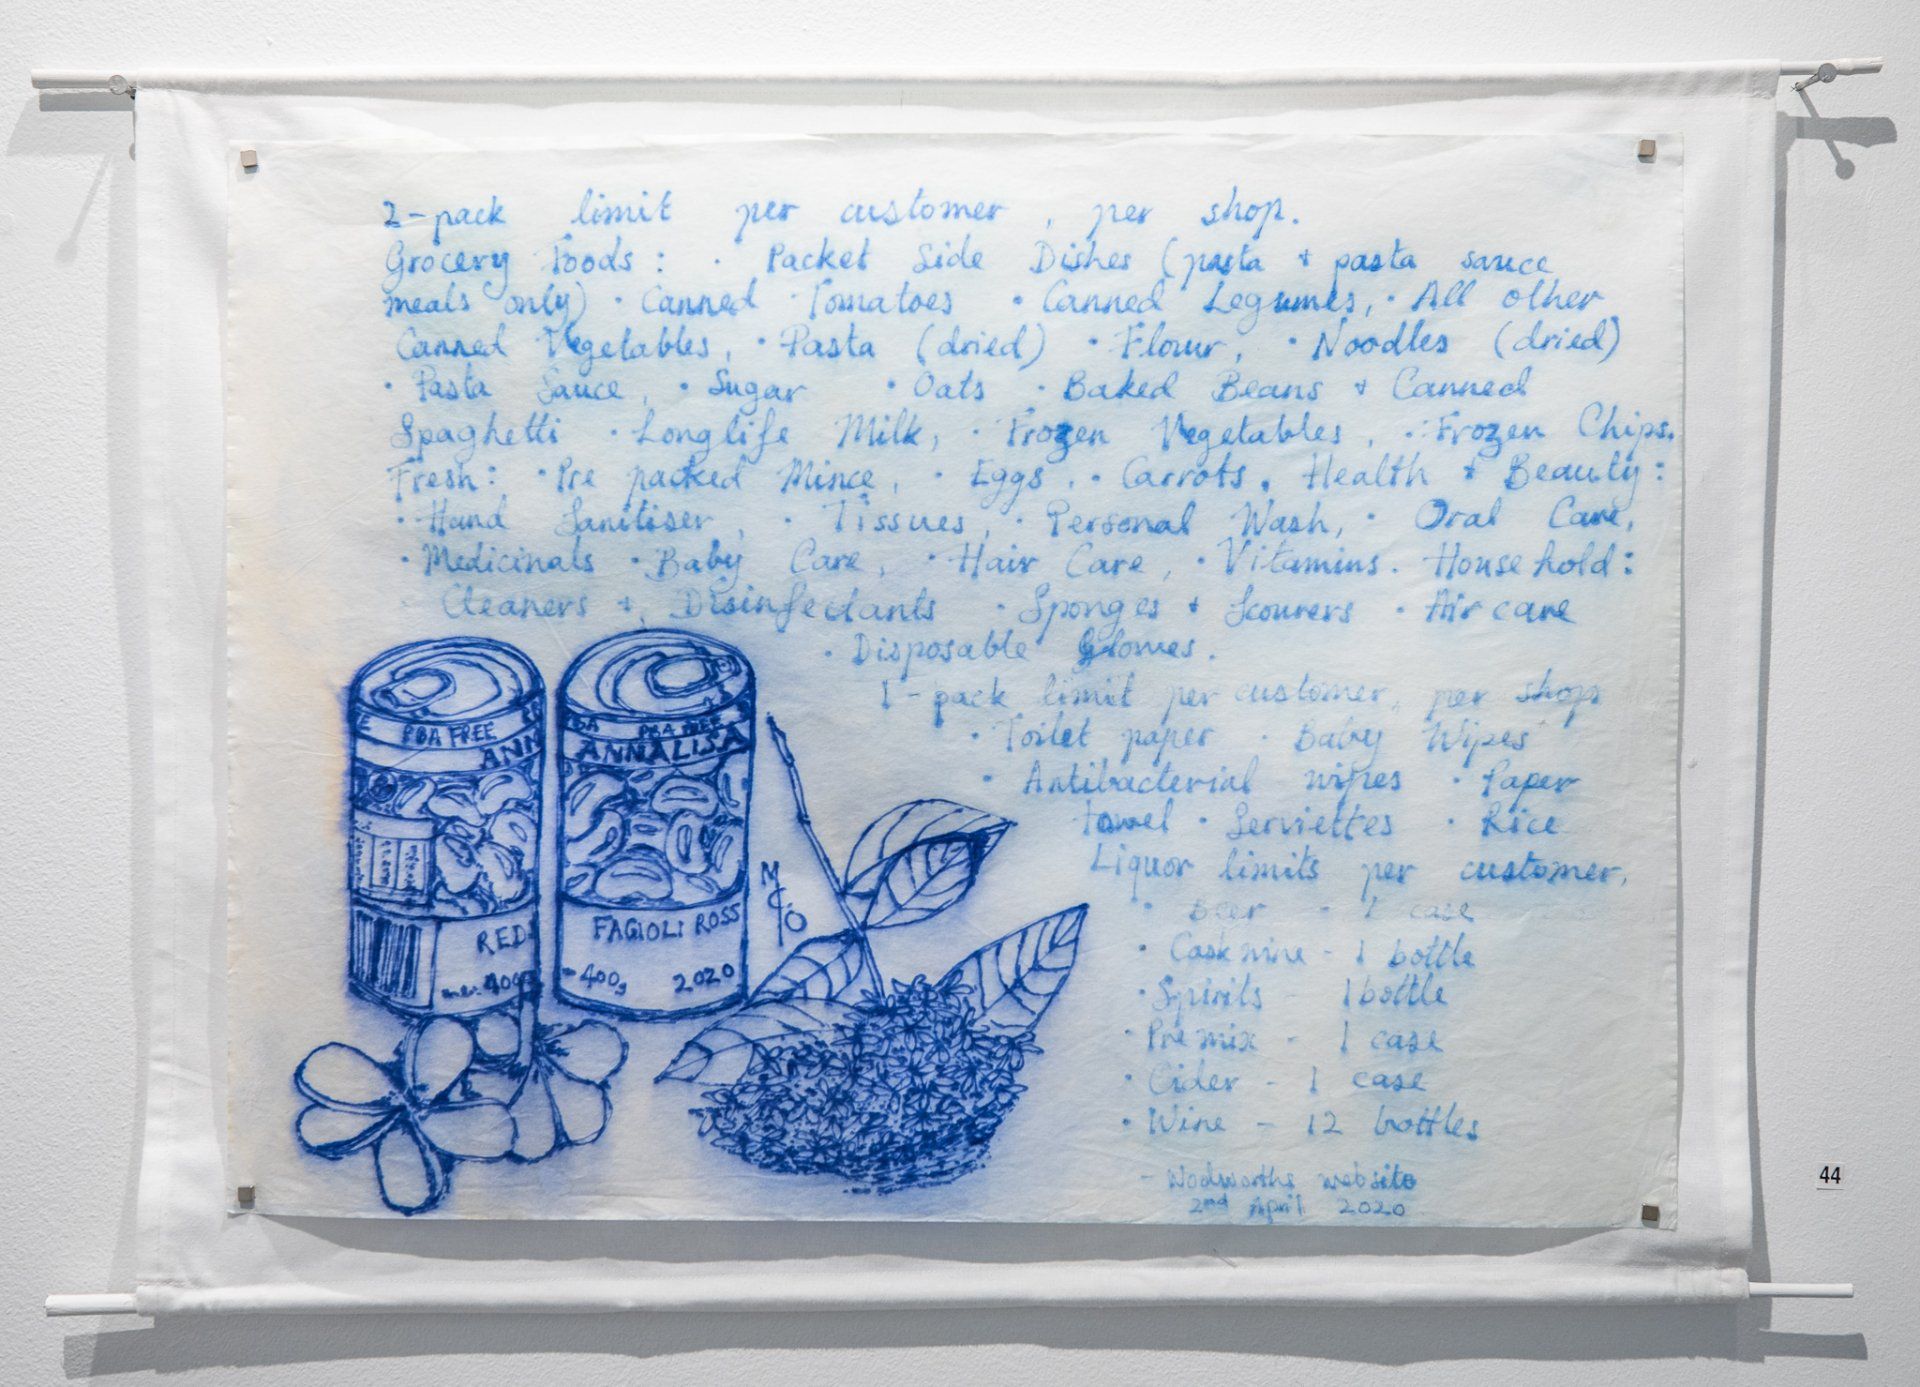 2-pack limit per customer, per shop.
Grocery Foods: · Packet Side Dishes (pasta + pasta sauce
meals only) · Canned Tomatoes · Canned Legumes, · All other
Canned Vegetables, · Pasta (dried) · Flour, · Noodles (dried)
· Pasta Sauce, · Sugar · Oats · Baked Beans + Canned
Spaghetti · Longlife Milk, · Frozen Vegetables, · Frozen Chips.
Fresh: · Pre packed Mince, · Eggs, · Carrots. Health + Beauty:
· Hand Sanitiser, · Tissues, · Personal Wash, · Oral Care,
· Medicinals · Baby Care, · Hair Care, · Vitamins. Household:
Cleaners + Disinfectants · Sponges + Scourers · Air care
· Disposable Gloves.
1-pack limit per customer, per shop
· Toilet paper · Baby Wipes
· Antibacterial wipes · Paper
towel · Serviettes · Rice
Liquor limits per customer,
· Beer - 1 case
· Cask wine - 1 bottle
· Spirits - 1 bottle
· Pre mix - 1 case
· Cider - 1 case
· Wine - 12 bottles
- Woolworths website
2nd April 2020
PBA FREE
ANN
RED
400g
PBA FREE
ANNALISA
FAGIOLI ROSS
400g 2020
44